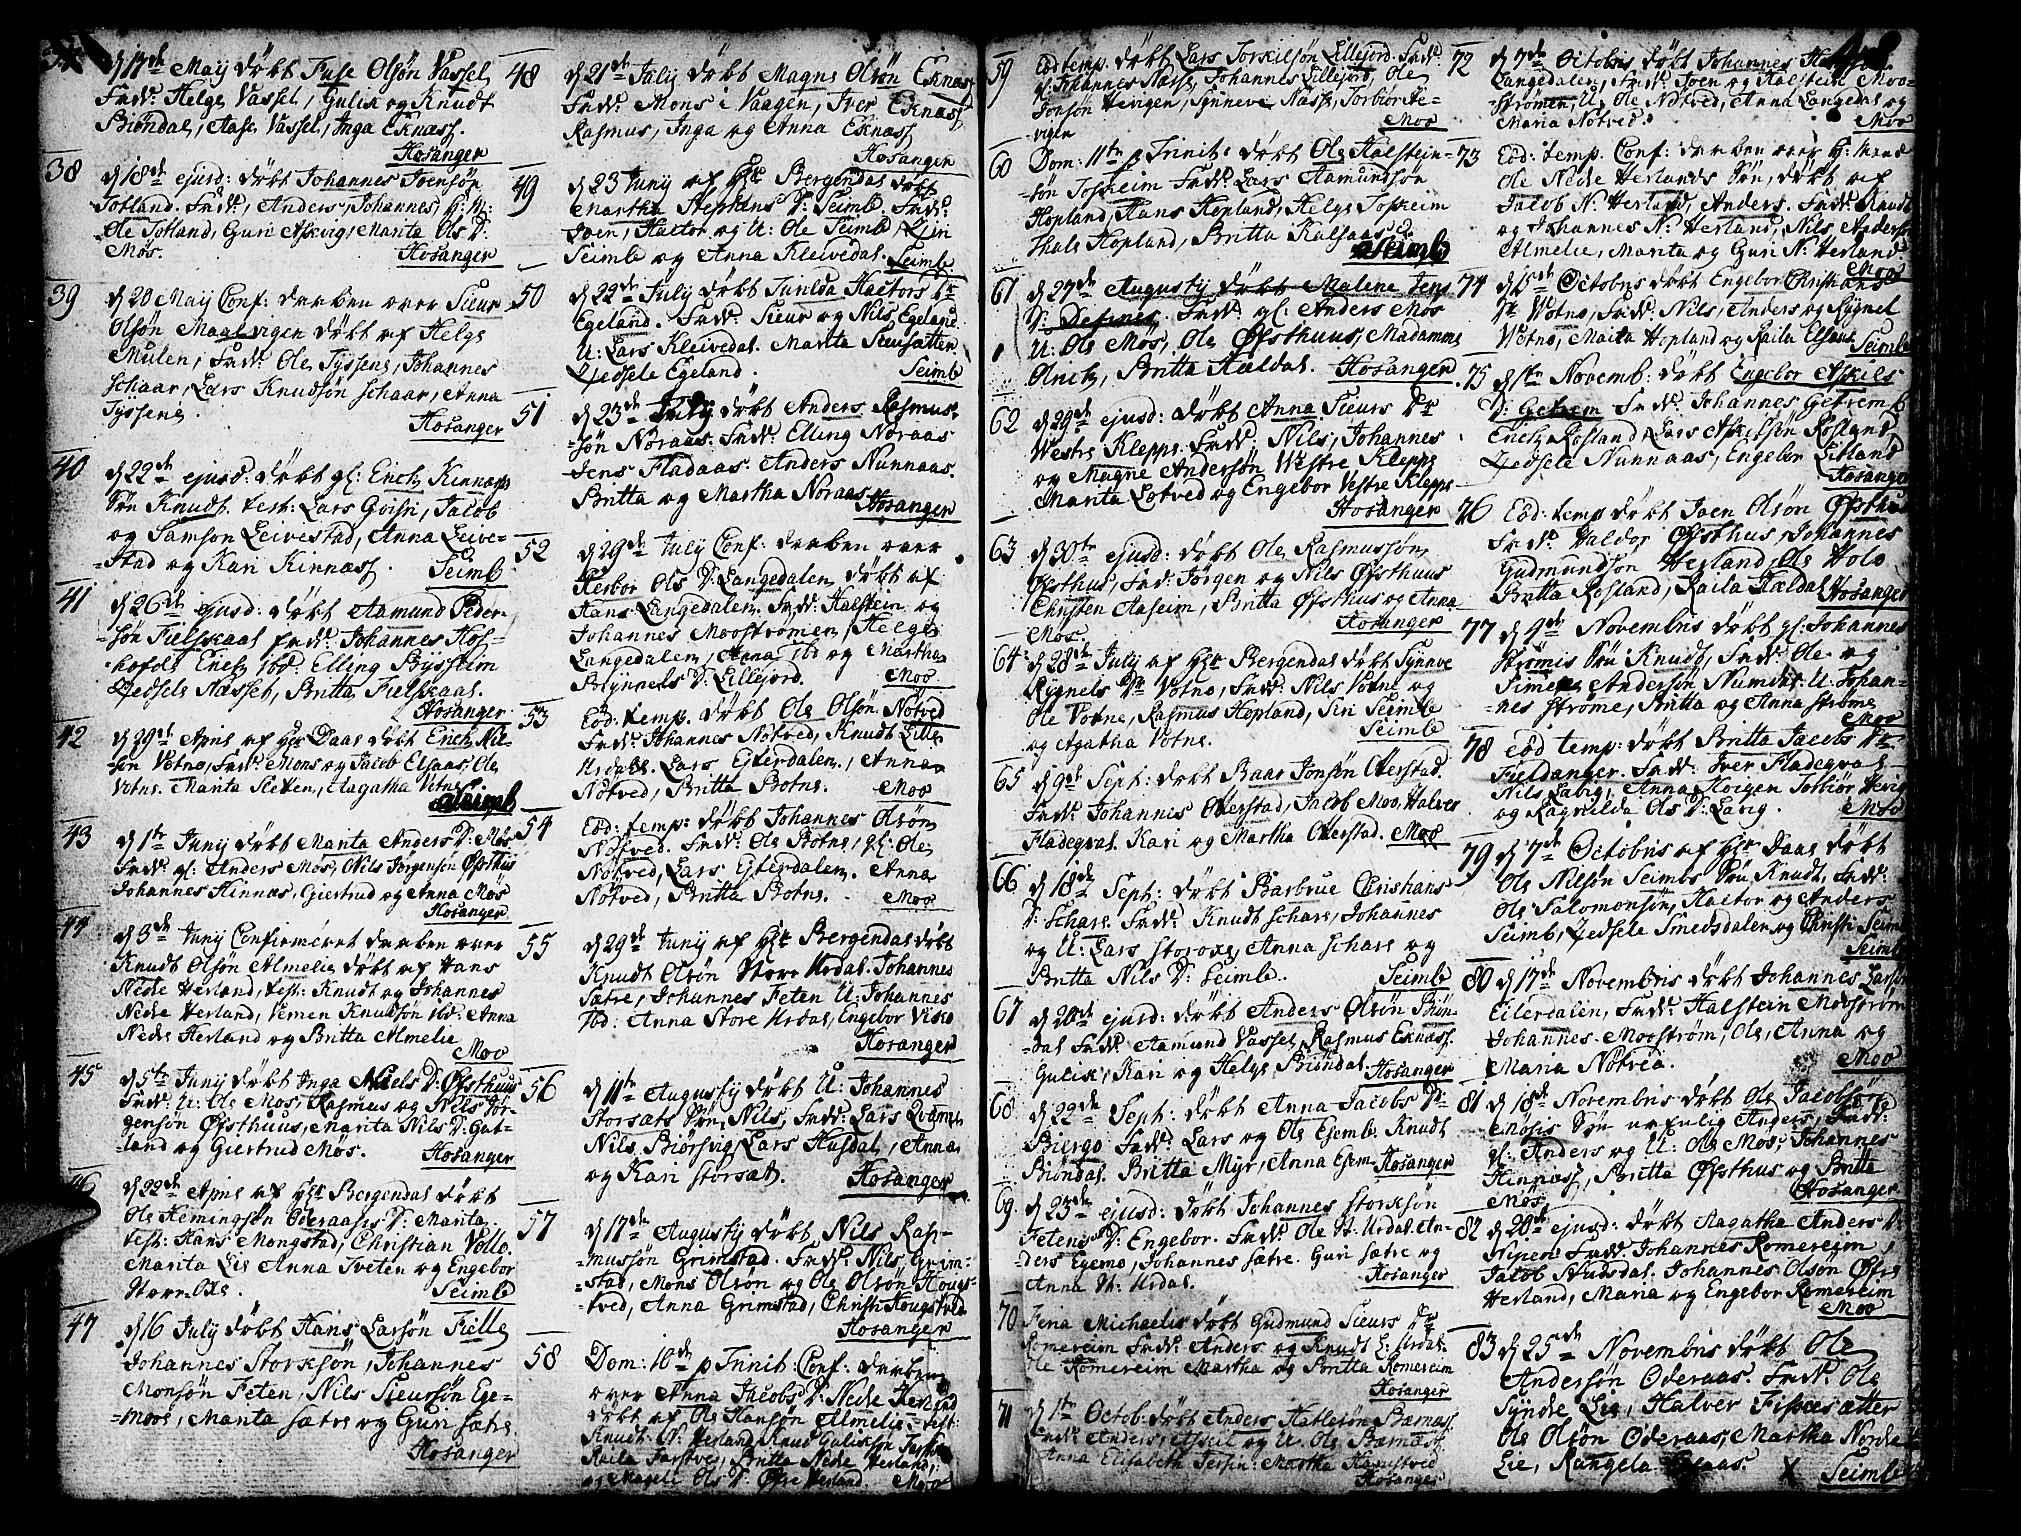 d 17de Maij døbt Fuse Olsøn Vassel
Fadd. Helge Vassel, Gulik og Knudt
Biöndal, Aase Vassel, Inga Eknæss.
Hosanger
38
d 18de ejusd: døbt Johannes Ivensøn
Totland. Fadd., Anders, Johannes,
Ole Totland, Guri Askvig, Marita Ols D:
Møs.
Hosanger
39
d 20 Maij Conf: daaben over Sieur
Olsøn Maalvigen døbt af Helge
Mulen, Fadd. Ole Tyssene, Johannes
Schaar, Lars Knudsøn Schaar, Anna
Tyssene.
Hosanger
40
d 22de ejusd: døbt gl: Erich Kinnæss
Søn Knudt. test: Lars, Jacob
og Samson Leivestad, Anna Leive-
-stad og Kari Kinnæss.
Seimb
41
d 26de ejusd: døbt Aamund Peder-
-søn Fielskaal Fadd. Johannes Hos-
-hofde Erich ibd. Elling Byssheim
Zedsele Næsset, Britta Fielskaal.
Hosanger
42
d 29de April af Hr Daae døbt Erich Nil-
-søn Votno, Fadd. Mons og Jacob Elsaas, Ole
Votne. Marita Sletten, Aagatha Votne
Seimb
43
d 1te Junij døbt Marita Anders D: Møs
Fadd. gl: Anders Møs, Nils Jørgensøn Øfsthus
Johannes Hinnæs, Giertrud og Anna Møs
Hosanger
44
d 3de Junij Confirmeret daaben over
Knudt Olsøn Almelie døbt af Hans
Nedre Herland, test: Knudt og Johannes
Nedre Herland, Vemen Knudsøn ibd: Anna
Nedre Herland og Britta Almelie
Moo
45
d 5te Junij døbt Inga Niels D: Øfsthuus
Fadd. U: Ole Mos, Rasmus og Nils Jør-
gensøn Øfsthuus, Marita Nils D: Gat-
-land og Giertrud Møs.
Hosanger
46
d 22de April af Hr Bergendal døbt
Ole Hemingsøn Oderaases D: Marita
test: Hans Mongstad, Christian Vollo.
Marita Lie Anna Tveten og Engebor
Seimb
47
d 16 July døbt Hans Larsøn Fielle
Johannes Storksøn, Johannes
Monsøn Feten, Nils Sieursøn Ege-
-moe, Marita Sætre og Guri Sætre
Hosanger
48
d 21de July døbt Magne Olsøn Eknæss
Fadd. Mons i Vaagen, Iver Eknæss
Rasmus, Inga og Anna Eknæss
Hosanger
49
d 23 Junij af Hr Bergendal døbt
Martha Stephens D: Seimb Fadd:
Joen, Hactor og U: Ole Seimb, Siri
Seimb og Anna Kleivedal.
Seimb
50
d 22de July døbt Gunilda Hactors Dr
Egeland. Fadd. Sieur og Nils Egeland
U: Lars Kleivedal. Marita
Zedsele Egeland.
Seimb
51
d 23de July døbt Anders Rasmus-
-søn Noraas. Fadd. Elling Noraas
Jens Fladaas. Anders Nunnaas.
Britta og Martha Noraas
Hosanger
52
d 29de July Conf: daaben over
Herbor Ols D: Langedalen døbt af
Hans Langedalen. Fadd. Halstein og
Johannes Mooströmen, Helge
Langedalen, Anna ibd og Martha
Brynnels D: Lillejord.
Moo
53
Eod: temp. døbt Ole Olsøn Nøtved
Fadd. Johannes Nøtved, Knudt Lille
Urdal. Lars Eiterdalen, Anna
Nøtved, Britta Botne.
Moo
54
Eod: temp: døbt Johannes Olsøn
Nøtved. Fadd. Ole Botne, gl: Ole
Nøtved, Lars Eiterdalen. Anna
Nøtved, Britta Botne.
Moo
55
d 29de Junij af Hr Bergendal døbt
Knudt Olsøn Store Urdal. Johannes
Sætre, Johannes Feten U: Johannes
ibd: Anna Store Urdal, Engebor
Hosanger
56
d 11te Augustij døbt U: Johannes
Storsæts Søn, Nils, Fadd: Lars
Nils Biørsvig, Lars Husdal, Anna
og Kari Storsæt.
Hosanger
57
d 17de Augustij døbt Nils Ras-
-mussøn Grimstad. Fadd. Nils Grim-
-stad, Mons Olsøn og Ole Olsøn Hougs-
-tved, Anna Grimstad, Christi Hougstved
Hosanger
58
Dom: 10de p Trinit: Conf: daaben
over Anna Jacobs D: Nedre Herland
døbt af Ole Hansøn Almelie. test:
Knudt N: Herland, Knud Guliksøn
Raila Farstve, Britta Nedre Herland,
og Mageli Ols D: Øfre Herland.
Moo
59
Eod temp. døbt Lars Torkilsøn Lillejord. Fadd.
gl: Johannes Næss, Johannes Lillejord, Ole
Jonsøn Hevigen, Synneve Næss, Torbiør He-
vigen
Moo
60
Dom: 11te p Trinit: døbt Ole Halstein-
-søn Joskeim Fadd. Lars Aamundsøn
Hopland, Hans Hopland, Helge Joskeim
Hopland, Britta Kalsaas
Seimb
61
d 27de Augustij døbt Malene Jens
D: . Fadd. gl: Anders Mos
U: Ole Møs, Ole Øfsthuus, Madamme
Britta Hældal.
Hosanger
62
d 29de ejusd: døbt Anna Sieurs Dr
Westre Kleppe. Fadd. Nils, Johannes
og Magne Andersøn Vestre Kleppe
Marita Lotved og Engebor Vestre Kleppe
Hosanger
63
d 30te ejusd: døbt Ole Rasmussøn
Øfsthus, Fadd. Jørgen og Nils Øfsthuus
Christen Aaseim, Britta Øfsthus og Anna
Møs.
Hosanger
64
d 28de July af Hr Bergendal døbt Synneve
Rygnels Dr Votno, Fadd. Nils Votne og
Ole Votne, Rasmus Hopland, Siri Seimb
og Agatha Votne.
Seimb
65
d 9de Sept: døbt Baar Jonsøn Okerstad.
Fadd. Johannes Okerstad, Jacob Moo, Halver
Fladeqval. Kari og Martha Okerstad.
Moo
66
d 18de Sept: døbt Barbrue Christians
D: Schare. Fadd. Knudt Schare, Johannes
og U: Lars Storoxe, Anna Schare og
Britta Nils D: Seimb.
Seimb
67
d 20de ejusd: døbt Anders Olsøn Biøn-
-dal Fadd. Aamund Vassel, Rasmus Eknæss.
Gulik, Kari og Helge Biøndal
Hosanger
68
d 22de Sept: døbt Anna Jacobs Dr
Biergo Fadd. Lars og Ole Esemb. Knudt
Biøndal. Britta Myr, Anna Esem
Hosanger
69
d 23de ejusd: døbt Johannes Storksøn
Fetene D: Engebor. Fadd. Ole St: Urdal. An-
ders Egemo, Johannes Sætre. Guri Sætre og
Anna St: Urdal.
Hosanger
70
Feria Michaelis døbt Gudmund Sieurs Dr
Romereim Fadd. Anders og Knudt L: Urdal.
Ole Romereim Martha og Britta Romereim
Hosanger
71
d 1te Octob: døbt Anders Hatlesøn Bærnæss
Fadd. Anders, Askil og U: Ole Bærnæss
Anna Elisabeth: Martha
Hosanger
72
d 7de Octobris døbt Johannes
Langedalen, Fadd. Joen og Halstein Moo-
-strømen, U: Ole Nøtved, Anna Langedal og
Maria Nøtved.
Moo
73
Eod: temp. Conf: daaben over
Ole Nedre Herlands Søn, døbt af
Jacob N: Herland, Anders. Fadd. Knudt
og Johannes N: Herland, Nils Anders
Almelie, Marita og Guri N: Herland.
Moo
74
d 15de Octobris døbt Engebor Christians
Dr Votno, Fadd. Nils, Anders og Rygnel
Votno, Marita Hopland og Raila Elsaas
Seimb
75
d 1te Novemb: døbt Engebor Askils
D: Getrem Fadd. Johannes Getremb
Erich Rosland, Lars Askilsøn Rosland
Zedsele Nunnaas, Engebor Litland
Hosanger
76
Eod: temp døbt Joen Olsøn Øfsthus
Fadd. Haldor Øfsthus, Johannes
Gudmundsøn Herland, Ole Holo
Britta Rosland, Raila Hældal
Hosanger
77
d 9de Novembris døbt gl: Johannes
Strømis Søn Knudt, Fadd. Ole og
Simen Andersøn Numdal U: Johan-
-nes Strøme, Britta og Anna Strøme
Moo
78
eod temp: døbt Britta Jacobs Dr
Fieldanger. Fadd. Iver Fladeqval
Nils Labig, Anna Torbiør Hevig
og Ragnilda Ols D: Labig.
Moo
79
d 7de Octobris af Hr Daae døbt
Ole Nilsøn Seimbs Søn Knudt, Fadd:
Ole Salomonsøn, Hactor og Anders
Seimb, Zedsele Smedsdalen og Christi Seimb
Seimb
80
d 17de Novembris døbt Johannes Larsøn
Eiterdalen, Fadd. Halstein Moostrøm
Johannes Moostrøm, Ole, Anna og
Maria Nøtved.
Moo
81
d 18de Novembris døbt Ole Jacobsøn
Mosis Søn uægtelig Anders, Fadd:
gl: Anders og U: Ole Møs, Johannes
Hinnæss, Britta Øfsthus og Britta
Møs
Hosanger
82
d 20de ejusd: døbt Aagatha Anders D:
Nipen Fadd. Johannes Romereim
Jacob Husdal. Johannes Olsøn Øfre
Herland, Maria og Engebor Romereim
Moo
83
d 25de Novembris døbt Ole
Andersøn Oderaas. Fadd. Ole
Syndre Lie, Halver Fiskesætter
Ole Olsøn Oderaas, Martha Nordre
Lie, Rangela
Seimb